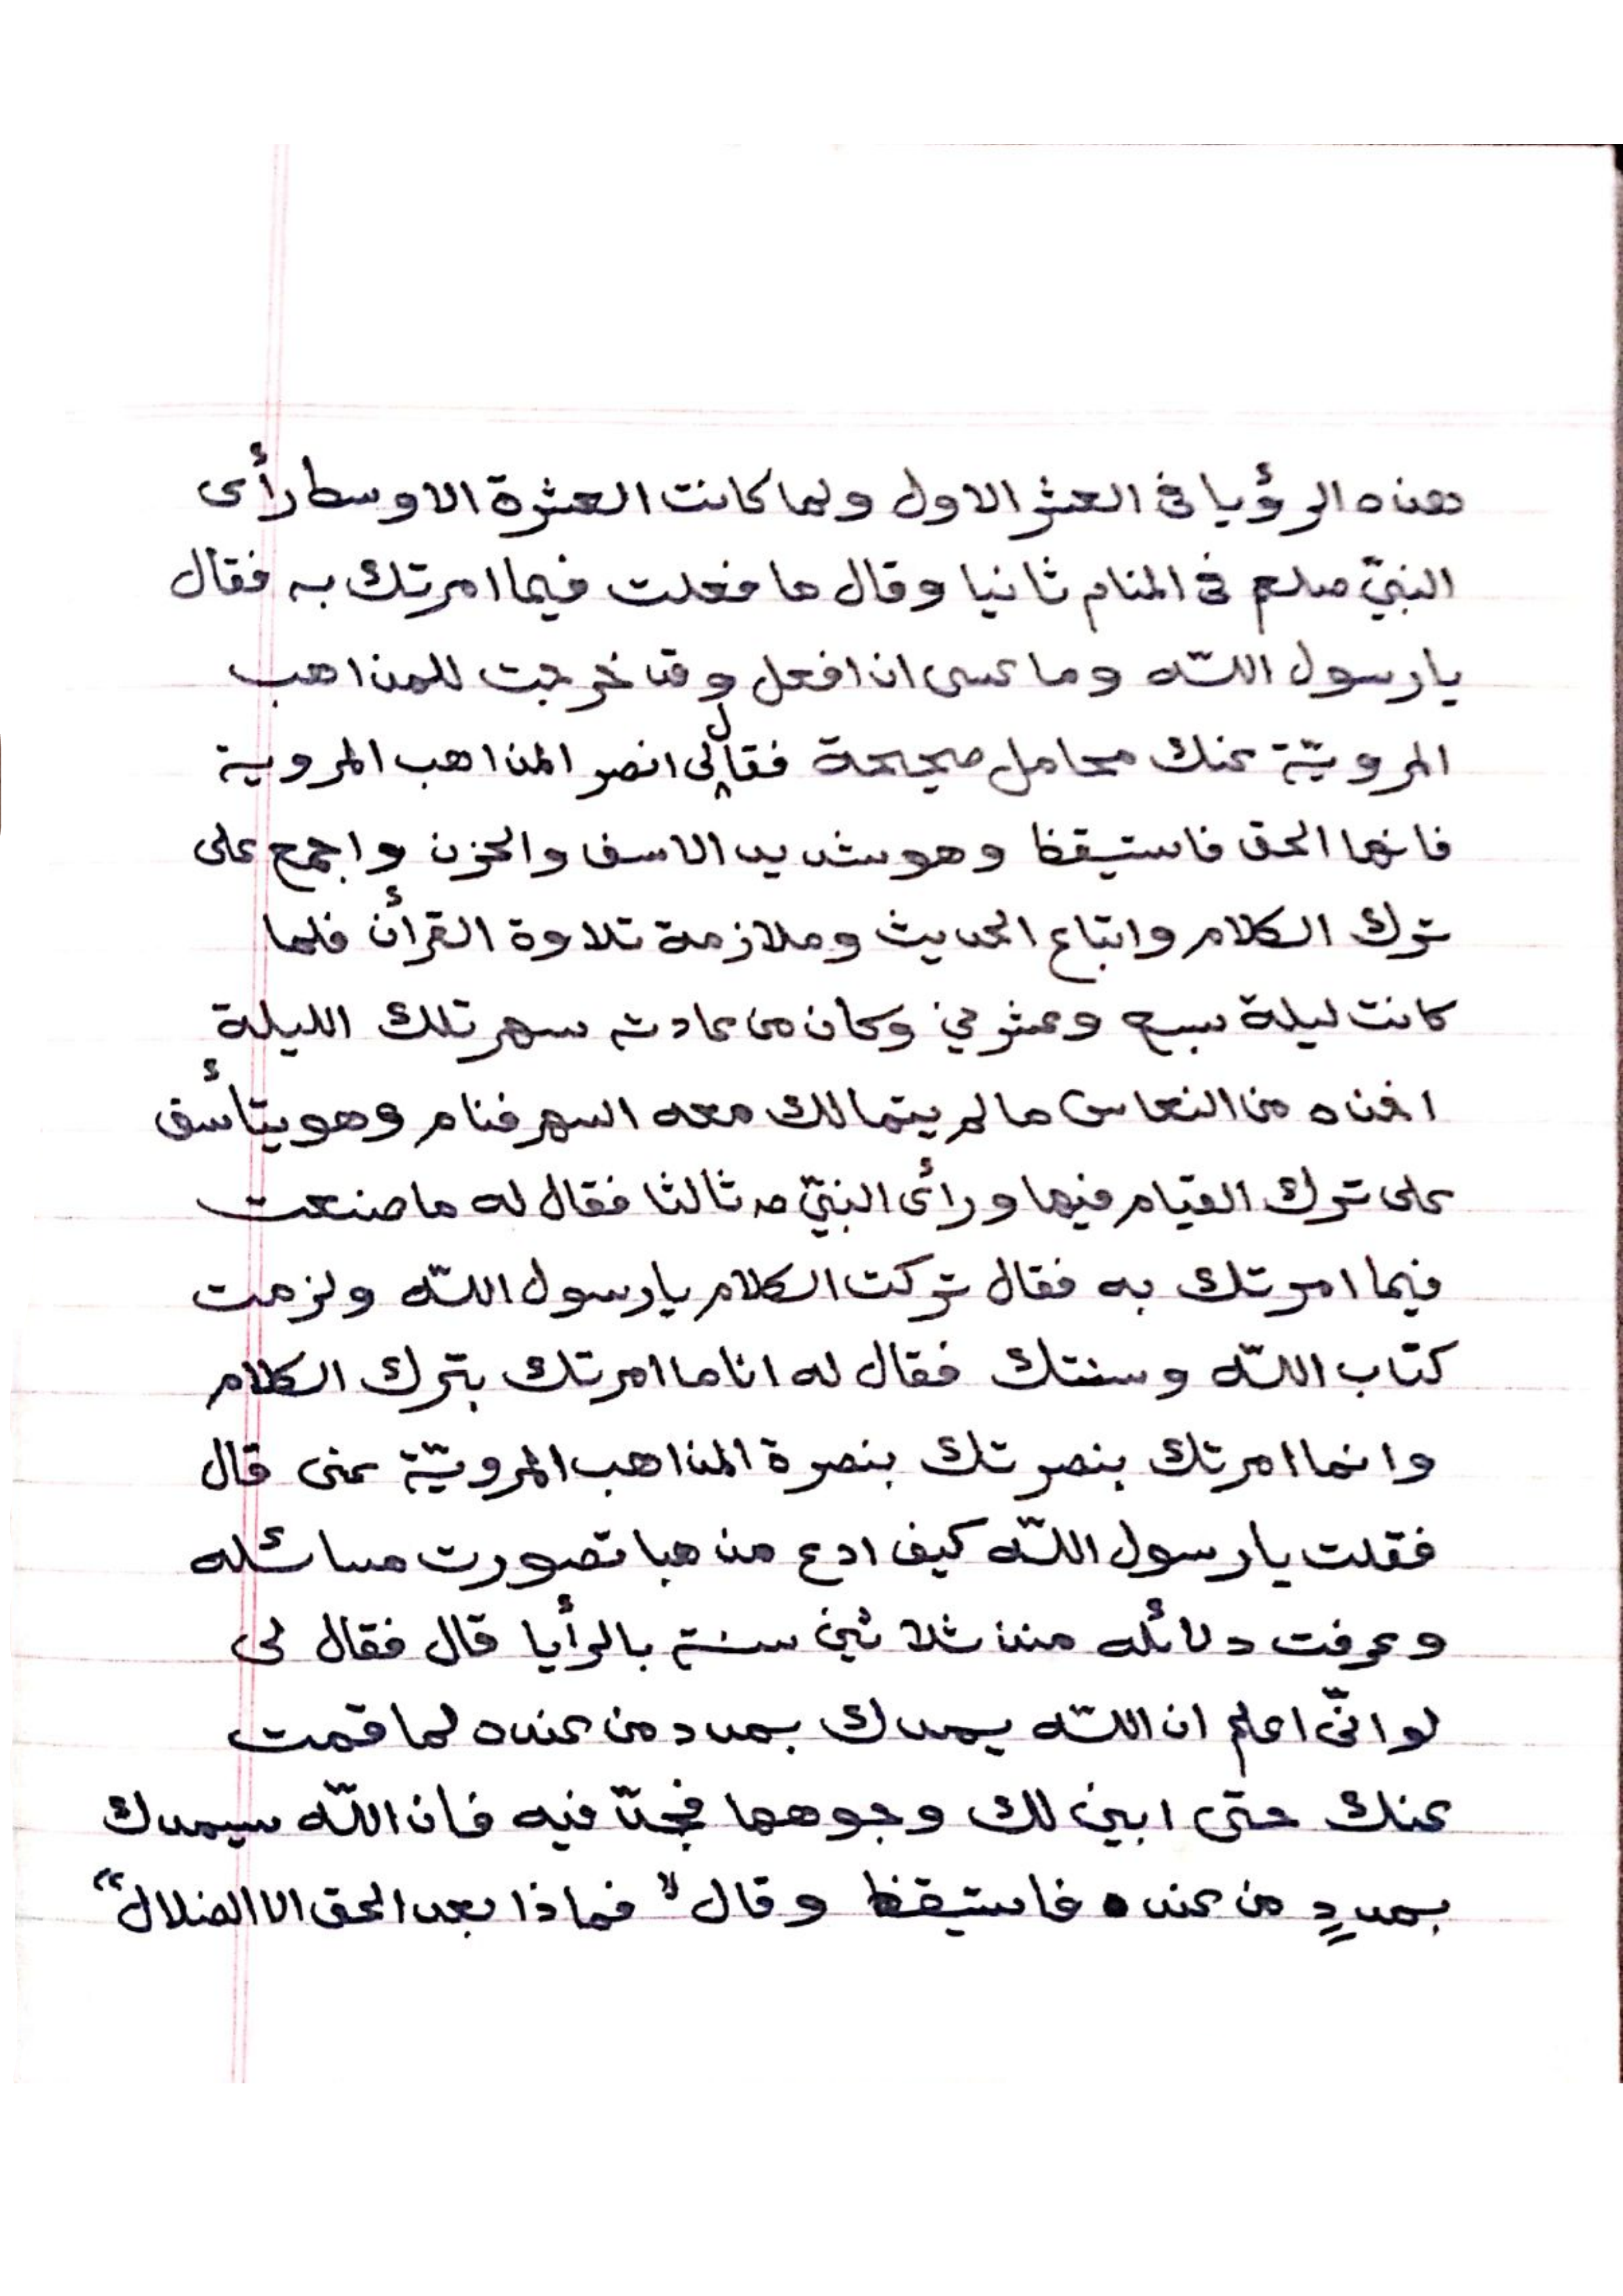 هذه الرؤيا فى العشر الاول ولما كانت العشرة الاوسط رأى
النبىّ صلعم فى المنام ثانيا وقال ما فعلت فيما امرتك به فقال
يا رسول اللّه وما عسى ان افعل وقد خرجت للمذاهب
المرويّة عنك محامل صحيحة فقال لى انصر المذاهب المروية
فانها الحق فاستيقظ وهو شديد الاسف والحزن واجمع على
ترك الكلام واتباع الحديث وملازمة تلاوة القرأن فلما
كانت ليلة سبع وعشرين وكان من عادته سهر تلك الليلة
اخذه من النعاس ما لم يتمالك معه السهر فنام وهو يتأسف
على ترك القيام فيها ورأى النبىّ صـ ثالثا فقال له ما صنعت
فيما امرتك به فقال تركت الكلام يا رسول اللّه ولزمت
كتاب اللّه وسنتك فقال له انا ما امرتك بترك الكلام
وانما امرتك بنصرتك بنصرة المذاهب المرويّة عنى قال
فقلت يا رسول اللّه كيف ادع مذهبا تصورت مسائله
وعرفت دلائله منذ ثلاثين سنة بالرأيا قال فقال لى
لو انّى اعلم ان اللّه يمدك بمدد من عنده لما قمت
عنك حتى ابين لك وجوهها فجدّ فيه فان اللّه سيمدك
بمددٍ من عنده فاستيقظ وقال "فماذا بعد الحق الا الضلال"